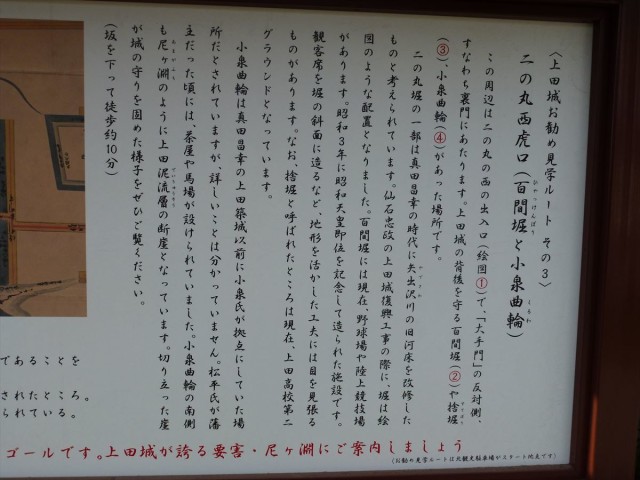 〈上田城お勧め見学ルート その3〉
二の丸西虎口(百間堀と小泉曲輪)
ひゃっけんぼり
くるわ
この周辺は二の丸の西の出入口(絵図①)で、「大手門」の反対側、
すなわち裏門にあたります。上田城の背後を守る百間堀(②)や捨堀
(③)、小泉曲輪(④)があった場所です。
二の丸堀の一部は真田昌幸の時代に矢出沢川の旧河床を改修した
ものと考えられています。仙石忠政の上田城復興工事の際に、堀は絵
図のような配置となりました。百間堀には現在、野球場や陸上競技場
があります。昭和3年に昭和天皇即位を記念して造られた施設です。
観客席を堀の斜面に造るなど、地形を活かした工夫には目を見張る
ものがあります。なお、捨堀と呼ばれたところは現在、上田高校第二
グラウンドとなっています。
小泉曲輪は真田昌幸の上田築城以前に小泉氏が拠点にしていた場
所だとされていますが、詳しいことは分かっていません。松平氏が藩
主だった頃には、茶屋や馬場が設けられていました。小泉曲輪の南側
も尼ヶ淵のように上田泥流層の断崖となっています。切り立った崖
が城の守りを固めた様子をぜひご覧ください。
(坂を下って徒歩約10分)
であることを
されたところ。
られている。
ゴールです。上田城が誇る要害・尼ヶ淵にご案内しましょう
(お勧め見学ルートは北観光駐車場がスタート地点です)